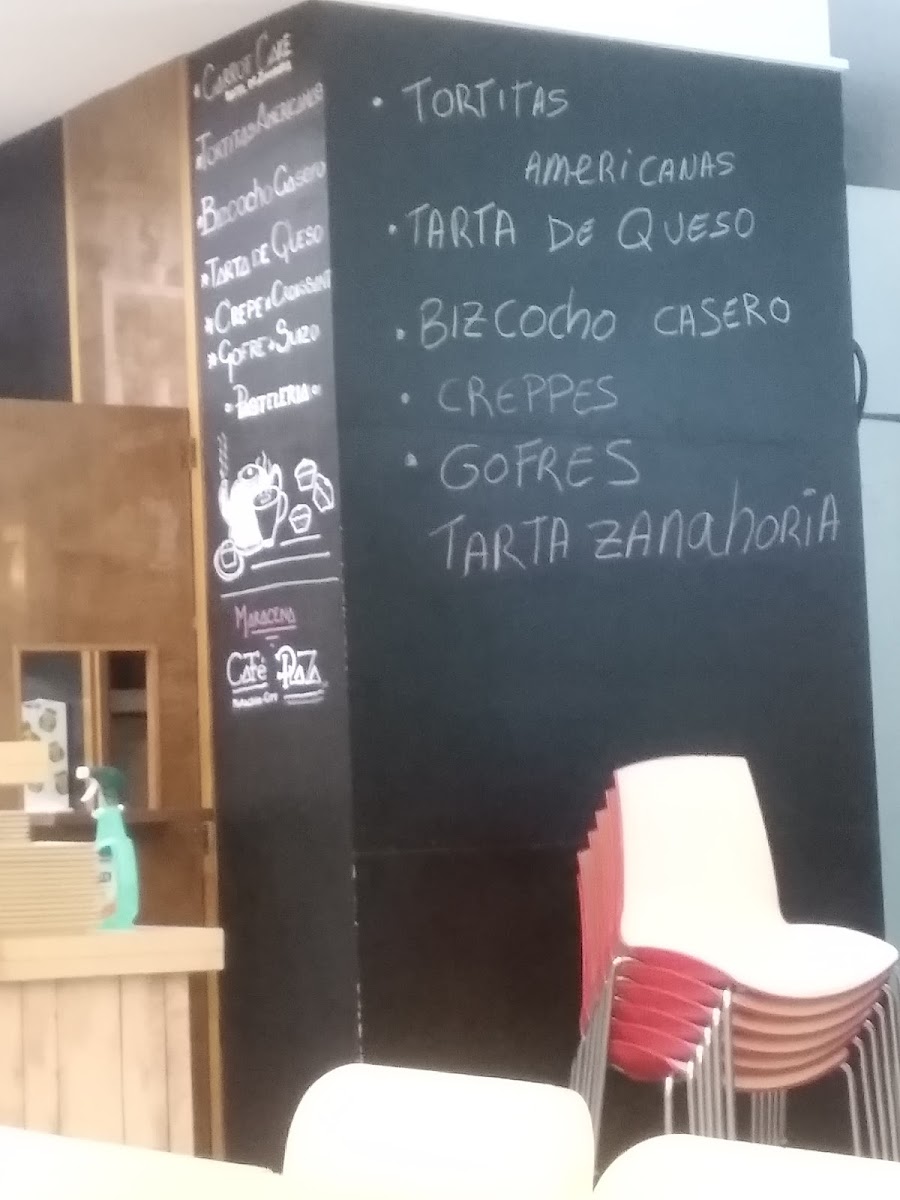 * CARROT CAKE
* TORTITAS AMERICANAS
* Bizcocho Casero
* TARTA DE QUESO
* CREPE * CROISSANT
* GOFRE * SUIZO
• PASTELERIA •
MARACENA
CAFÉ PLAZA
• TORTITAS
AMERICANAS
• TARTA DE QUESO
• BIZCOCHO CASERO
• CREPPES
• GOFRES
TARTA ZANAHORIA